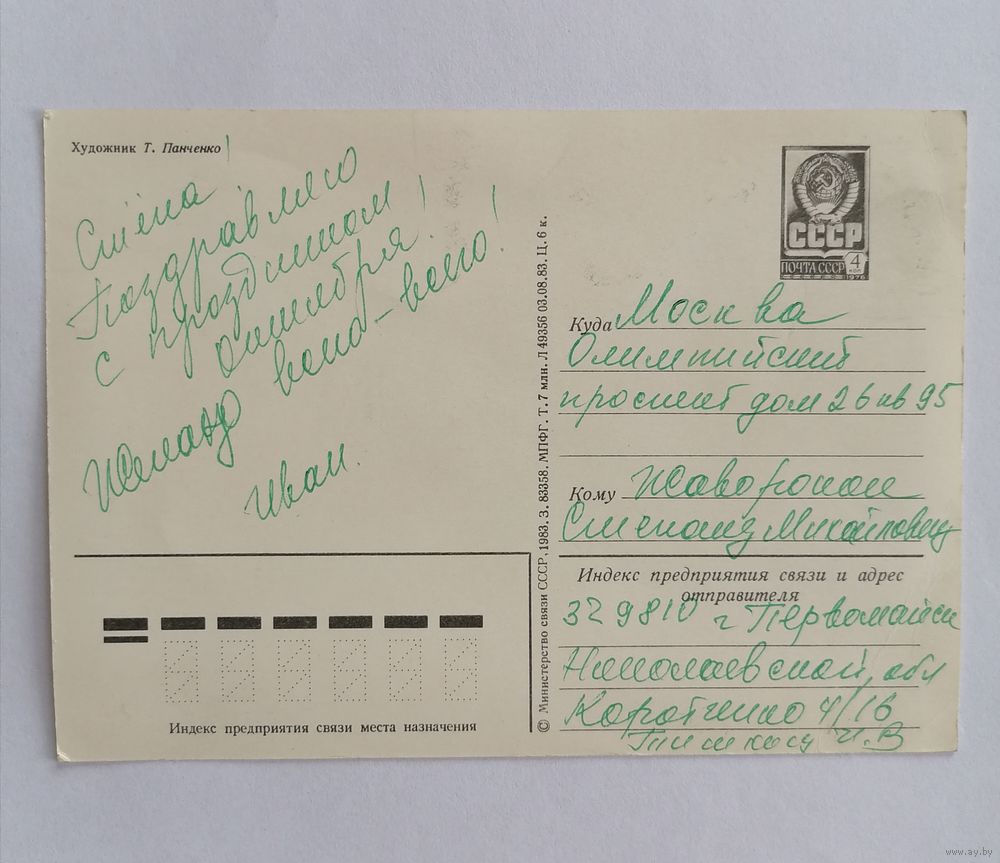 Художник Т. Панченко
Стёпа!
Поздравляю
с праздником
Октября!
Желаю всего-всего!
Иван.
СССР
ПОЧТА СССР 4 КОП
1976
Куда Москва
Олимпийский
проспект дом 26 кв 95
Кому Жаворонкам
Степану Михайловичу
Индекс предприятия связи и адрес
отправителя
329810 г Первомайск
Николаевской обл
Коротченко 4/16
И.В
Индекс предприятия связи места назначения
© Министерство связи СССР, 1983. З. 83358. МПФГ. Т. 7 млн. Л 49356 03.08.83. Ц. 6 к.
www.ay.by